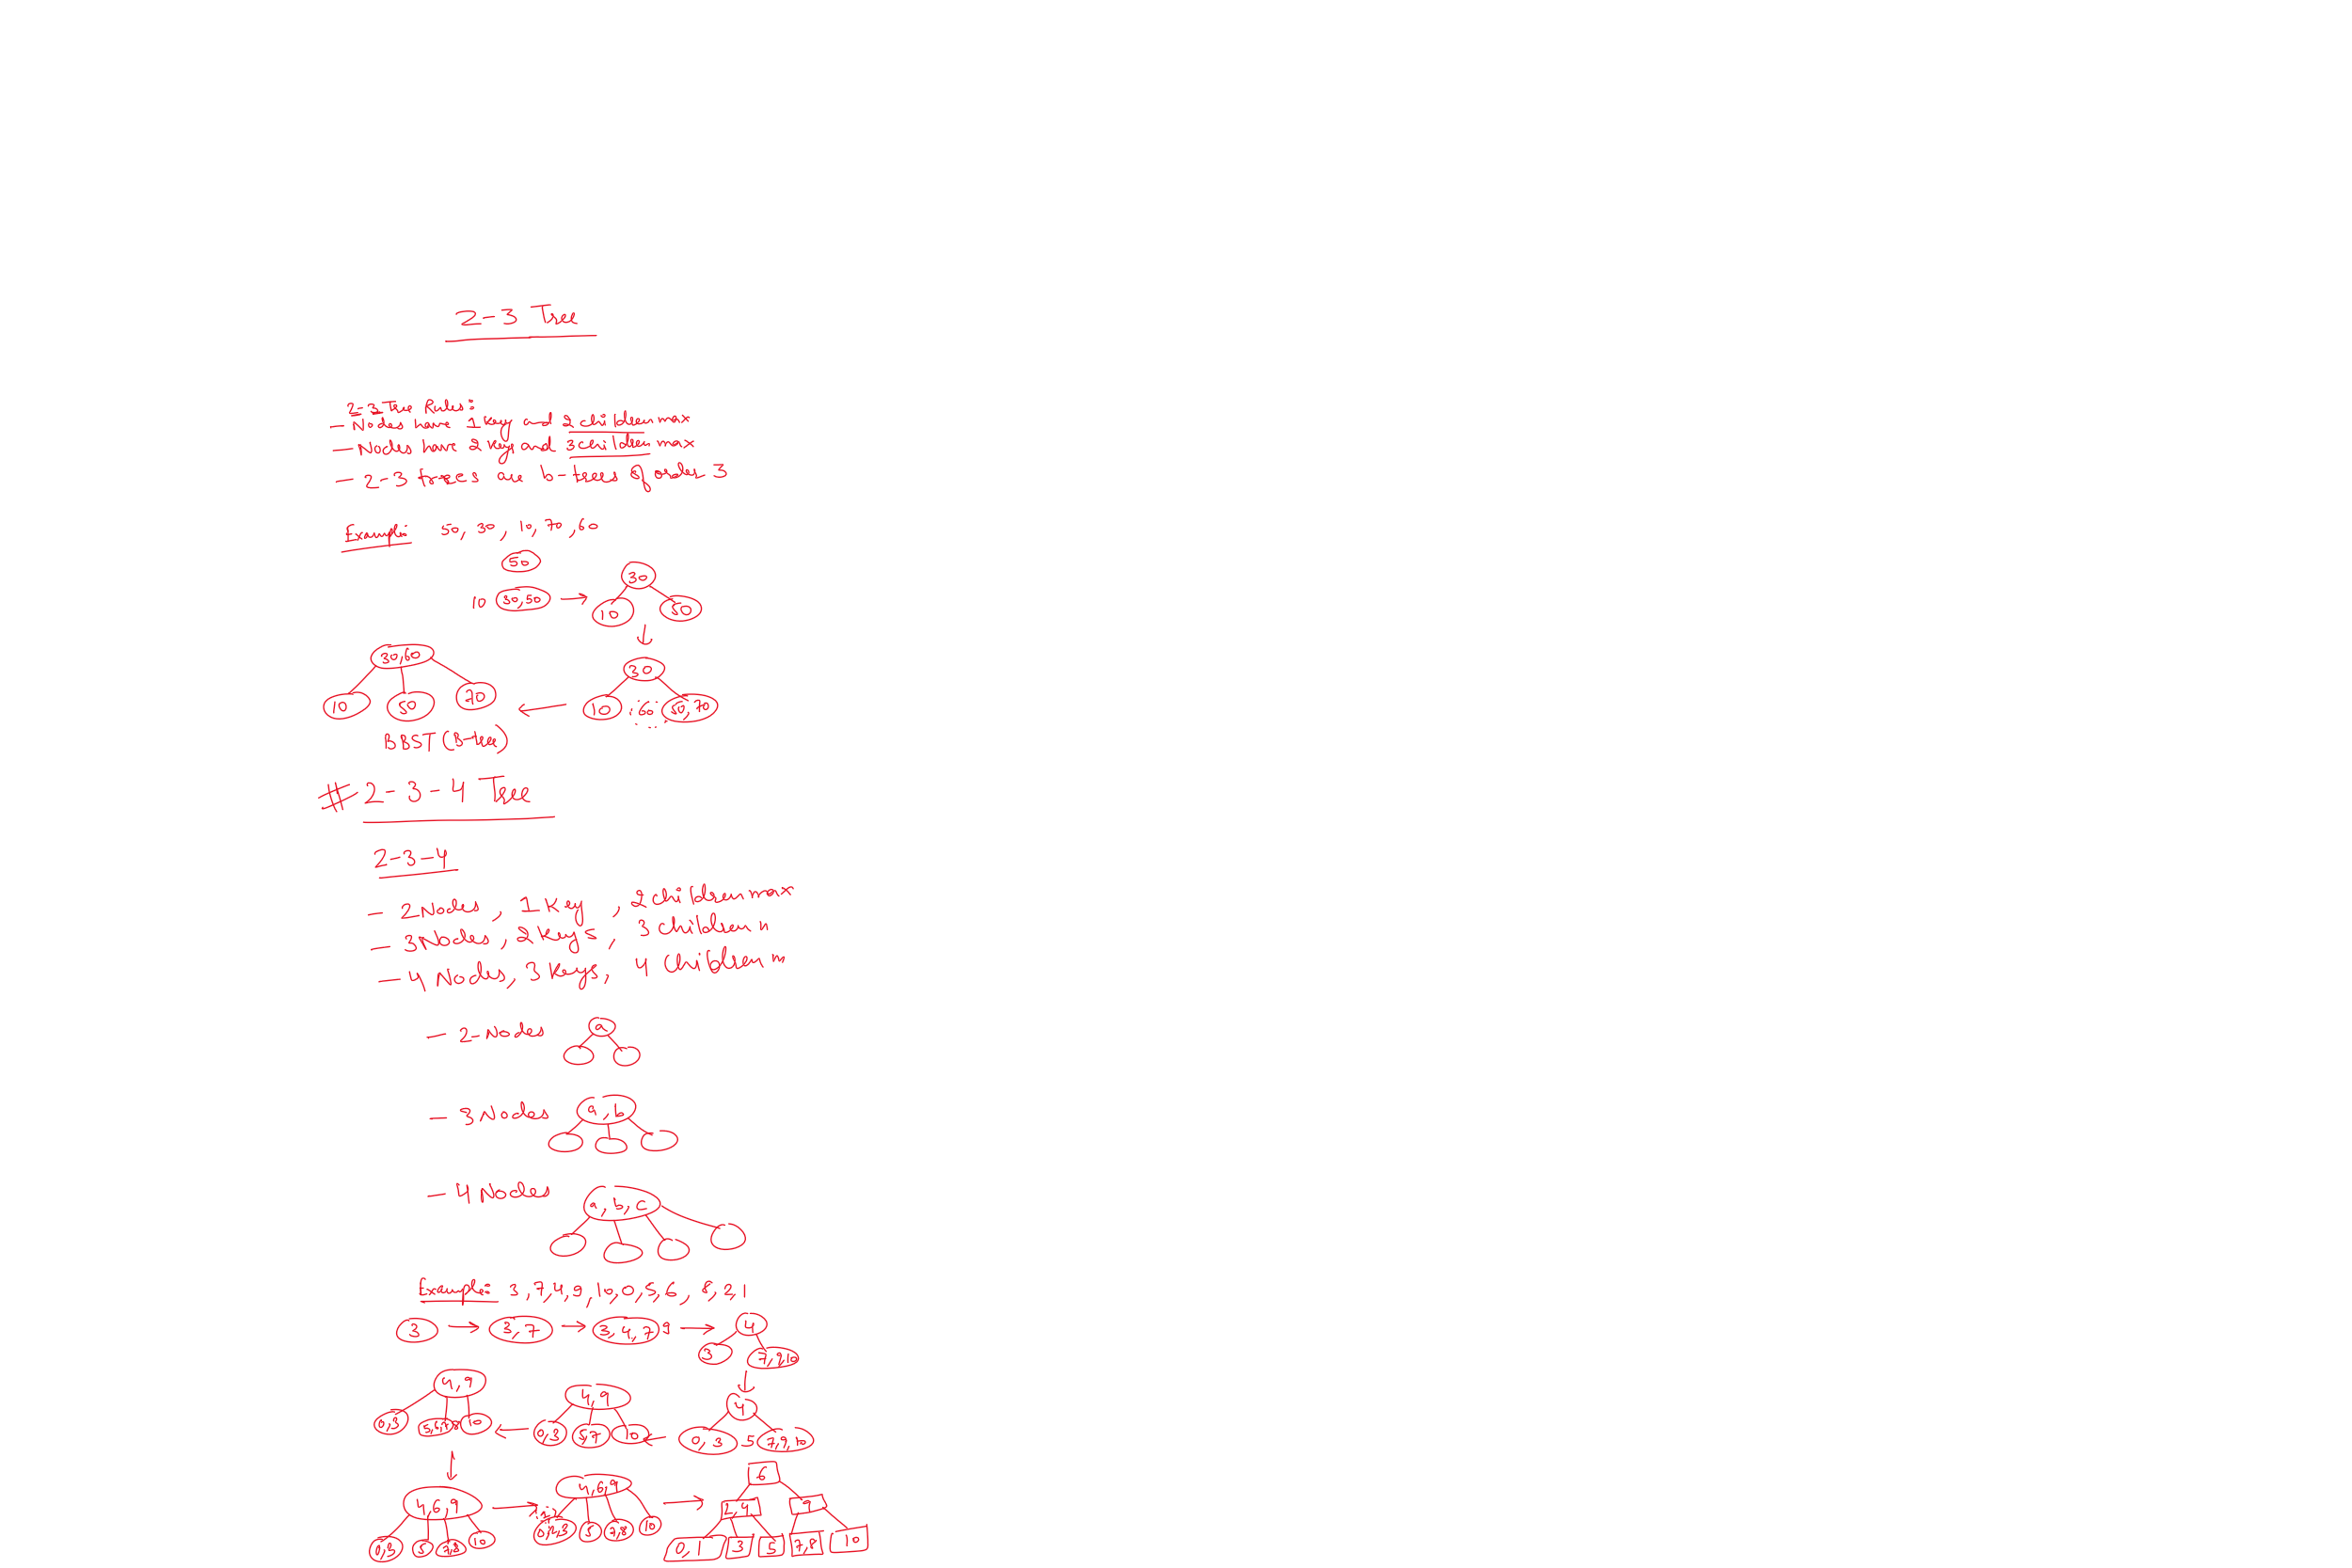 2-3 Tree
2-3 Tree Rules:
- Nodes have 1 key and 2 children max
- Nodes have 2 key and 3 children max
- 2-3 trees are b-trees of order 3
Example: 50, 30, 10, 70, 60
50
10 30,50 → 30
10 50
30,60 30
10 50 70 ← 10 60 50,70
BBST (B-tree)
# 2-3-4 Tree
2-3-4
- 2 Nodes, 1 Key, 2 children max
- 3 Nodes, 2 Keys, 3 children n
- 4 Nodes, 3 Keys, 4 Children m
- 2-Nodes a
- 3 Nodes a, b
- 4 Nodes a, b, c
Example: 3, 7, 4, 9, 10, 0, 5, 6, 8, 2, 1
3 → 3, 7 → 3, 4, 7 9 → 4
3 7, 9, 10
4, 9 4, 9 4
0, 3 5, 6, 7 8 10 ← 0, 3 5, 7 10 ← 0, 3 5 7, 9, 10
6
4, 6, 9 → 4, 6, 9 → 2, 4 9
0, 3 5 7, 8 10 0, 2, 3 5 7, 8 10 0, 1 3 5 7, 8 10